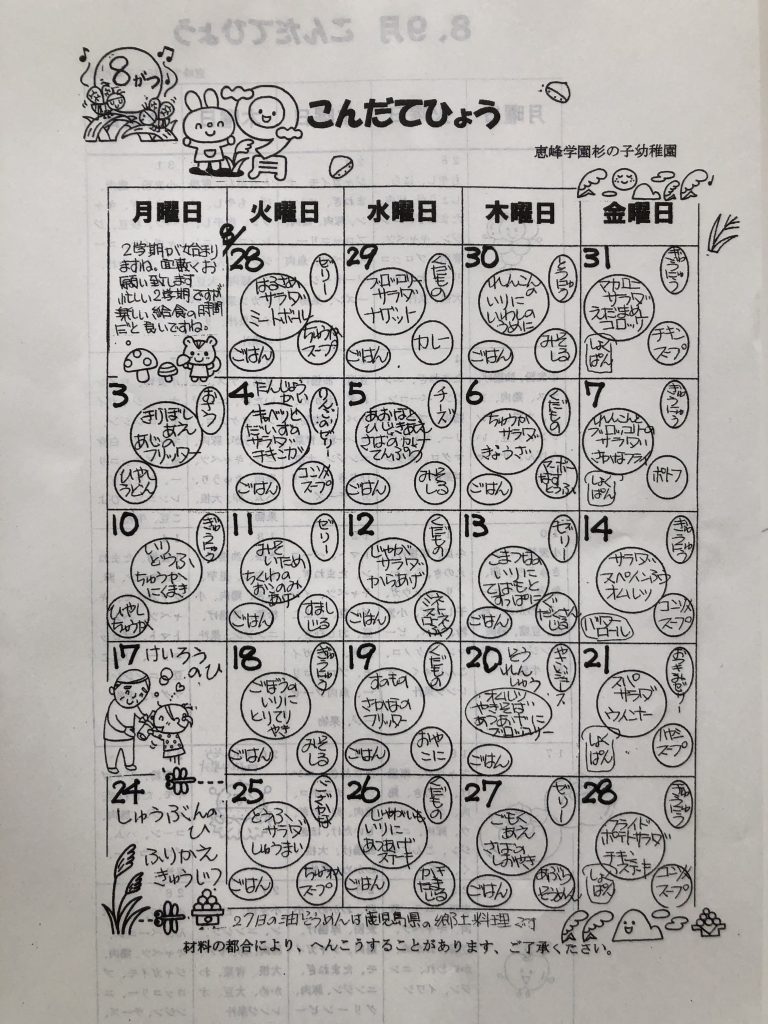 8、9月 こんだてひょう
8がつ
こんだてひょう
月
恵峰学園杉の子幼稚園
月曜日 火曜日 水曜日 木曜日 金曜日
2学期が始まり
ますね。宜敷くお
願い致します
忙しい2学期ですが
楽しい給食の時間
だと良いですね。
8/28
ゼリー
はるさめ
サラダ
ミートボール
ごはん
ちゅうか
スープ
29
くだもの
ブロッコリー
サラダ
ナゲット
ごはん
カレー
30
とうにゅう
れんこんの
いりに
いわしの
うめに
ごはん
みそ
しる
31
ぎゅうにゅう
マカロニ
サラダ
えだまめ
コロッケ
しょく
ぱん
チキン
スープ
3
おやつ
きりぼし
あえ
あじの
フリッター
ひやし
うどん
4
たんじょう
かい
りんごゼリー
キャベツと
だいずの
サラダ
チキンカツ
ごはん
コンソメ
スープ
5
チーズ
あおばと
ひじきあえ
さばのカレー
てんぷら
ごはん
みそ
しる
6
くだもの
ちゅうか
サラダ
ぎょうざ
ごはん
マーボー
とうふ
7
ぎゅうにゅう
れんこんと
ブロッコリーの
サラダ
さかなフライ
しょく
ぱん
ポトフ
10
ぎゅうにゅう
いり
どうふ
ちゅうかへ
にくまき
ひやし
ちゅうか
11
ゼリー
みそ
いため
ちくわの
おこのみ
あげ
ごはん
すまし
じる
12
くだもの
じゃが
サラダ
からあげ
ごはん
ミネスト
ローネ
スープ
13
ゼリー
こまつな
いりに
てばもと
すっぱに
ごはん
だごじる
14
ぎゅうにゅう
サラダ
スペインふう
オムレツ
バター
ロール
コンソメ
スープ
17
けいろう
のひ
18
ぎゅうにゅう
ごぼうの
いりに
とりてり
やき
ごはん
みそ
しる
19
くだもの
すのもの
さかなの
フリッター
ごはん
おや
こに
20
やさいジュース
オムレツ
やきそば
あつあげに
ブロッコリー
ごはん
21
スパ
サラダ
ウインナー
しょく
ぱん
スープ
24
しゅうぶんの
ひ
ふりかえ
きゅうじつ
25
こざかな
とうふ
サラダ
しゅうまい
ごはん
ちゅうか
スープ
26
くだもの
じゃがいも
いりに
あつあげ
ステーキ
ごはん
かき
たま
じる
27
ゼリー
ごもく
あえ
さばの
しおやき
ごはん
あぶら
そうめん
28
ぎゅうにゅう
フライド
ポテトサラダ
チキン
ステーキ
しょく
ぱん
コンソメ
スープ
27日の油どうめんは鹿児島県の郷土料理です
材料の都合により、へんこうすることがあります、ご了承ください。